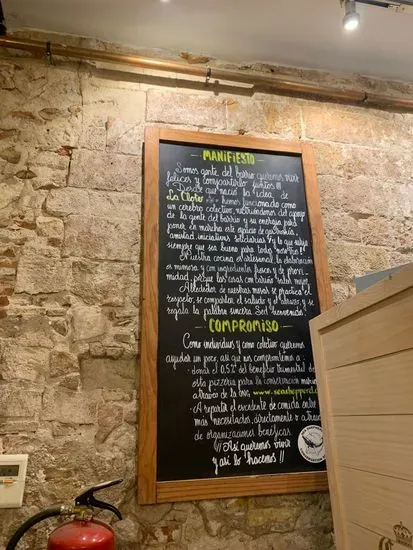 MANIFIESTO
Somos gente del barrio queremos vivir
felices y compartirlo juntos!!!
Desde que nació la idea de
La Clote hemos funcionado como
un cerebro colectivo, nutriéndonos del apoyo
de la gente del barrio y su energía para
poner en marcha este espacio de gastronomía,
amistad, iniciativas solidarias y lo que surja
siempre que sea bueno para todo "nosotros"!
Nuestra cocina es artesanal, la elaboración
es mimosa y con ingredientes frescos y de proxi-
midad, porque las cosas con cariño saben mejor.
Alrededor de nuestras mesas se practica el
respeto, se comparten el saludo y el abrazo, y se
regala la palabra sincera. Sed bienvenidos!
COMPROMISO
Como individuos y como colectivo queremos
ayudar un poco, así que nos comprometemos a:
- donar el 0,5% del beneficio trimestral de
esta pizzería para la conservación marina
a través de la ong www.seashepperd.
- A repartir el excedente de comida entre
más necesitados, directamente o a través
de organizaciones benéficas.
¡¡Así queremos vivir
y así lo hacemos!!